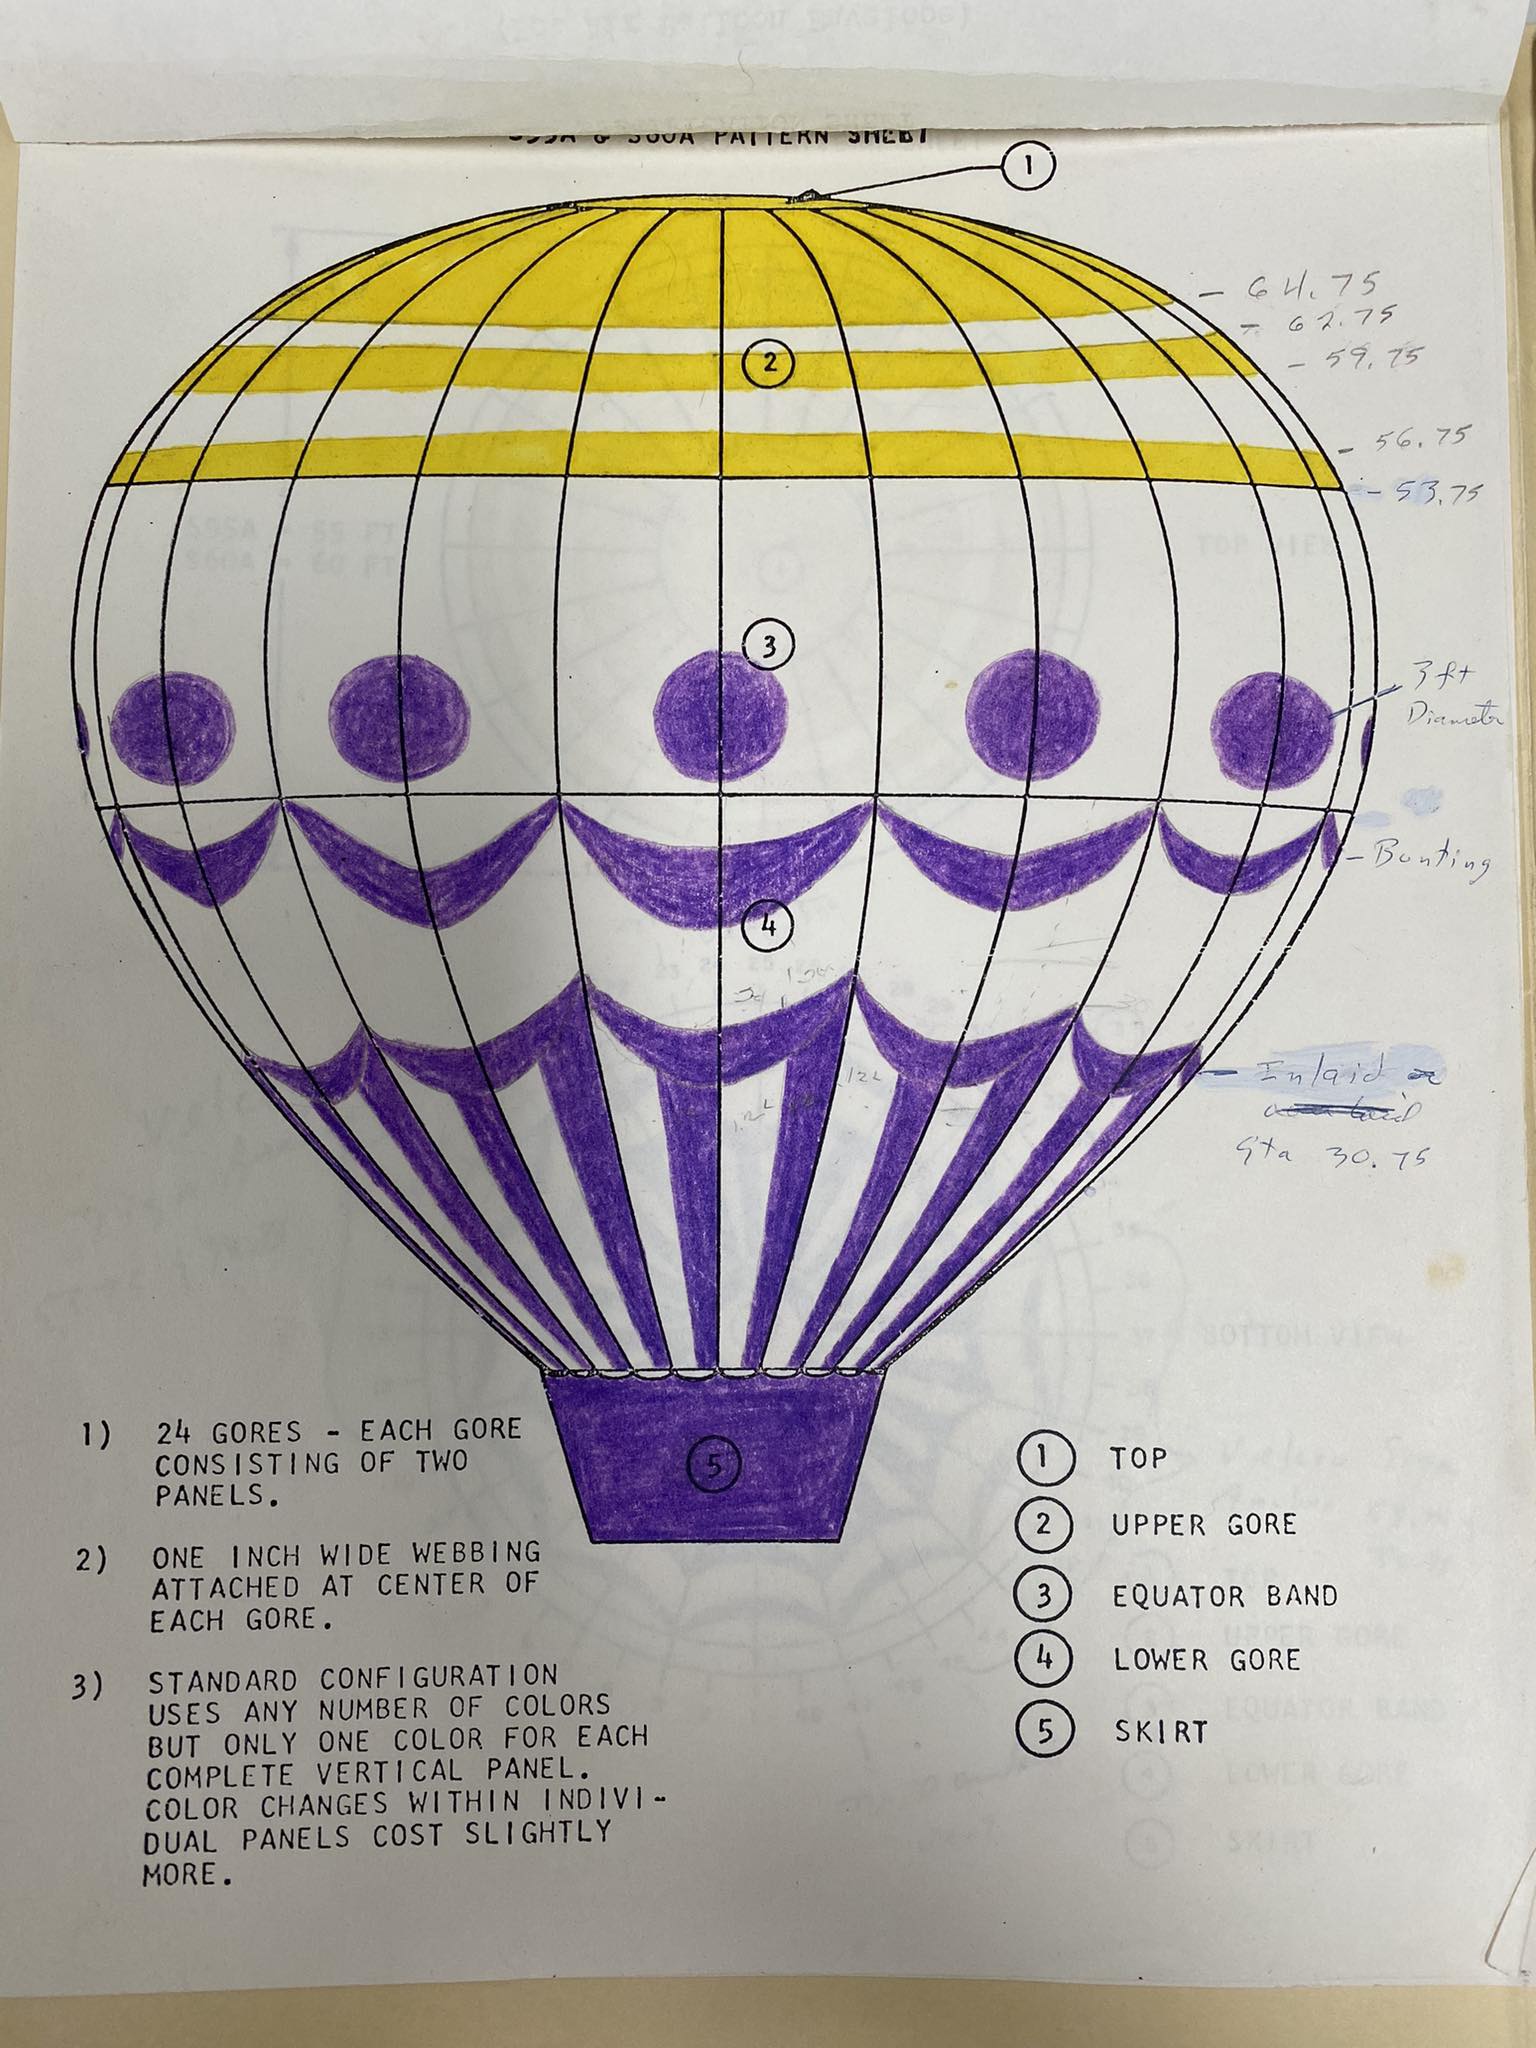 S55A & S60A PATTERN SHEET
1
- 64.75
- 62.75
- 59.75
2
- 56.75
- 53.75
S55A - 55 FT
S60A - 60 FT
TOP VIEW
3
3 ft
Diameter
- Bunting
4
- Inlaid or
Sta 30.75
BOTTOM VIEW
5
1) 24 GORES - EACH GORE
CONSISTING OF TWO
PANELS.
2) ONE INCH WIDE WEBBING
ATTACHED AT CENTER OF
EACH GORE.
3) STANDARD CONFIGURATION
USES ANY NUMBER OF COLORS
BUT ONLY ONE COLOR FOR EACH
COMPLETE VERTICAL PANEL.
COLOR CHANGES WITHIN INDIVI-
DUAL PANELS COST SLIGHTLY
MORE.
1 TOP
2 UPPER GORE
3 EQUATOR BAND
4 LOWER GORE
5 SKIRT